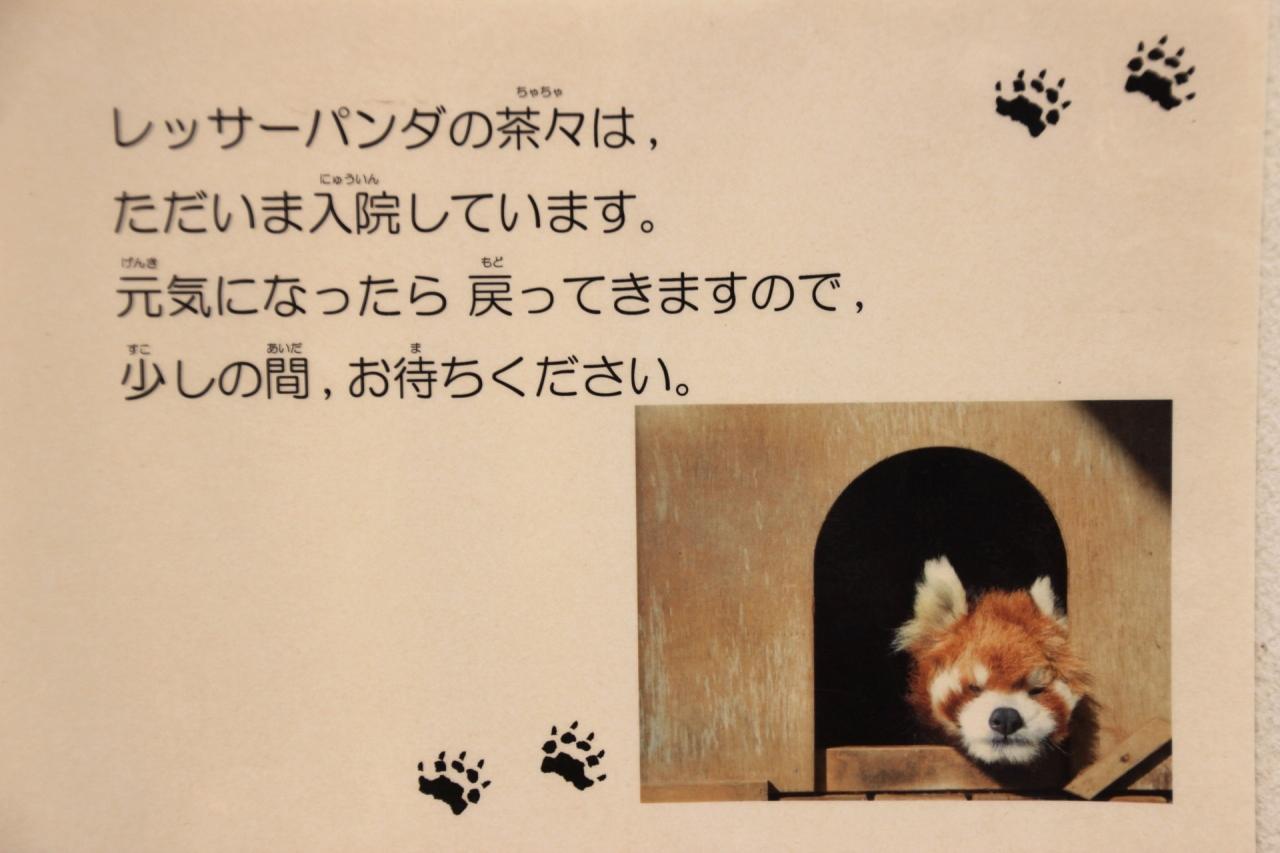 ちゃちゃ
レッサーパンダの茶々は，
にゅういん
ただいま入院しています。
げんき もど
元気になったら 戻ってきますので，
すこ あいだ ま
少しの間，お待ちください。